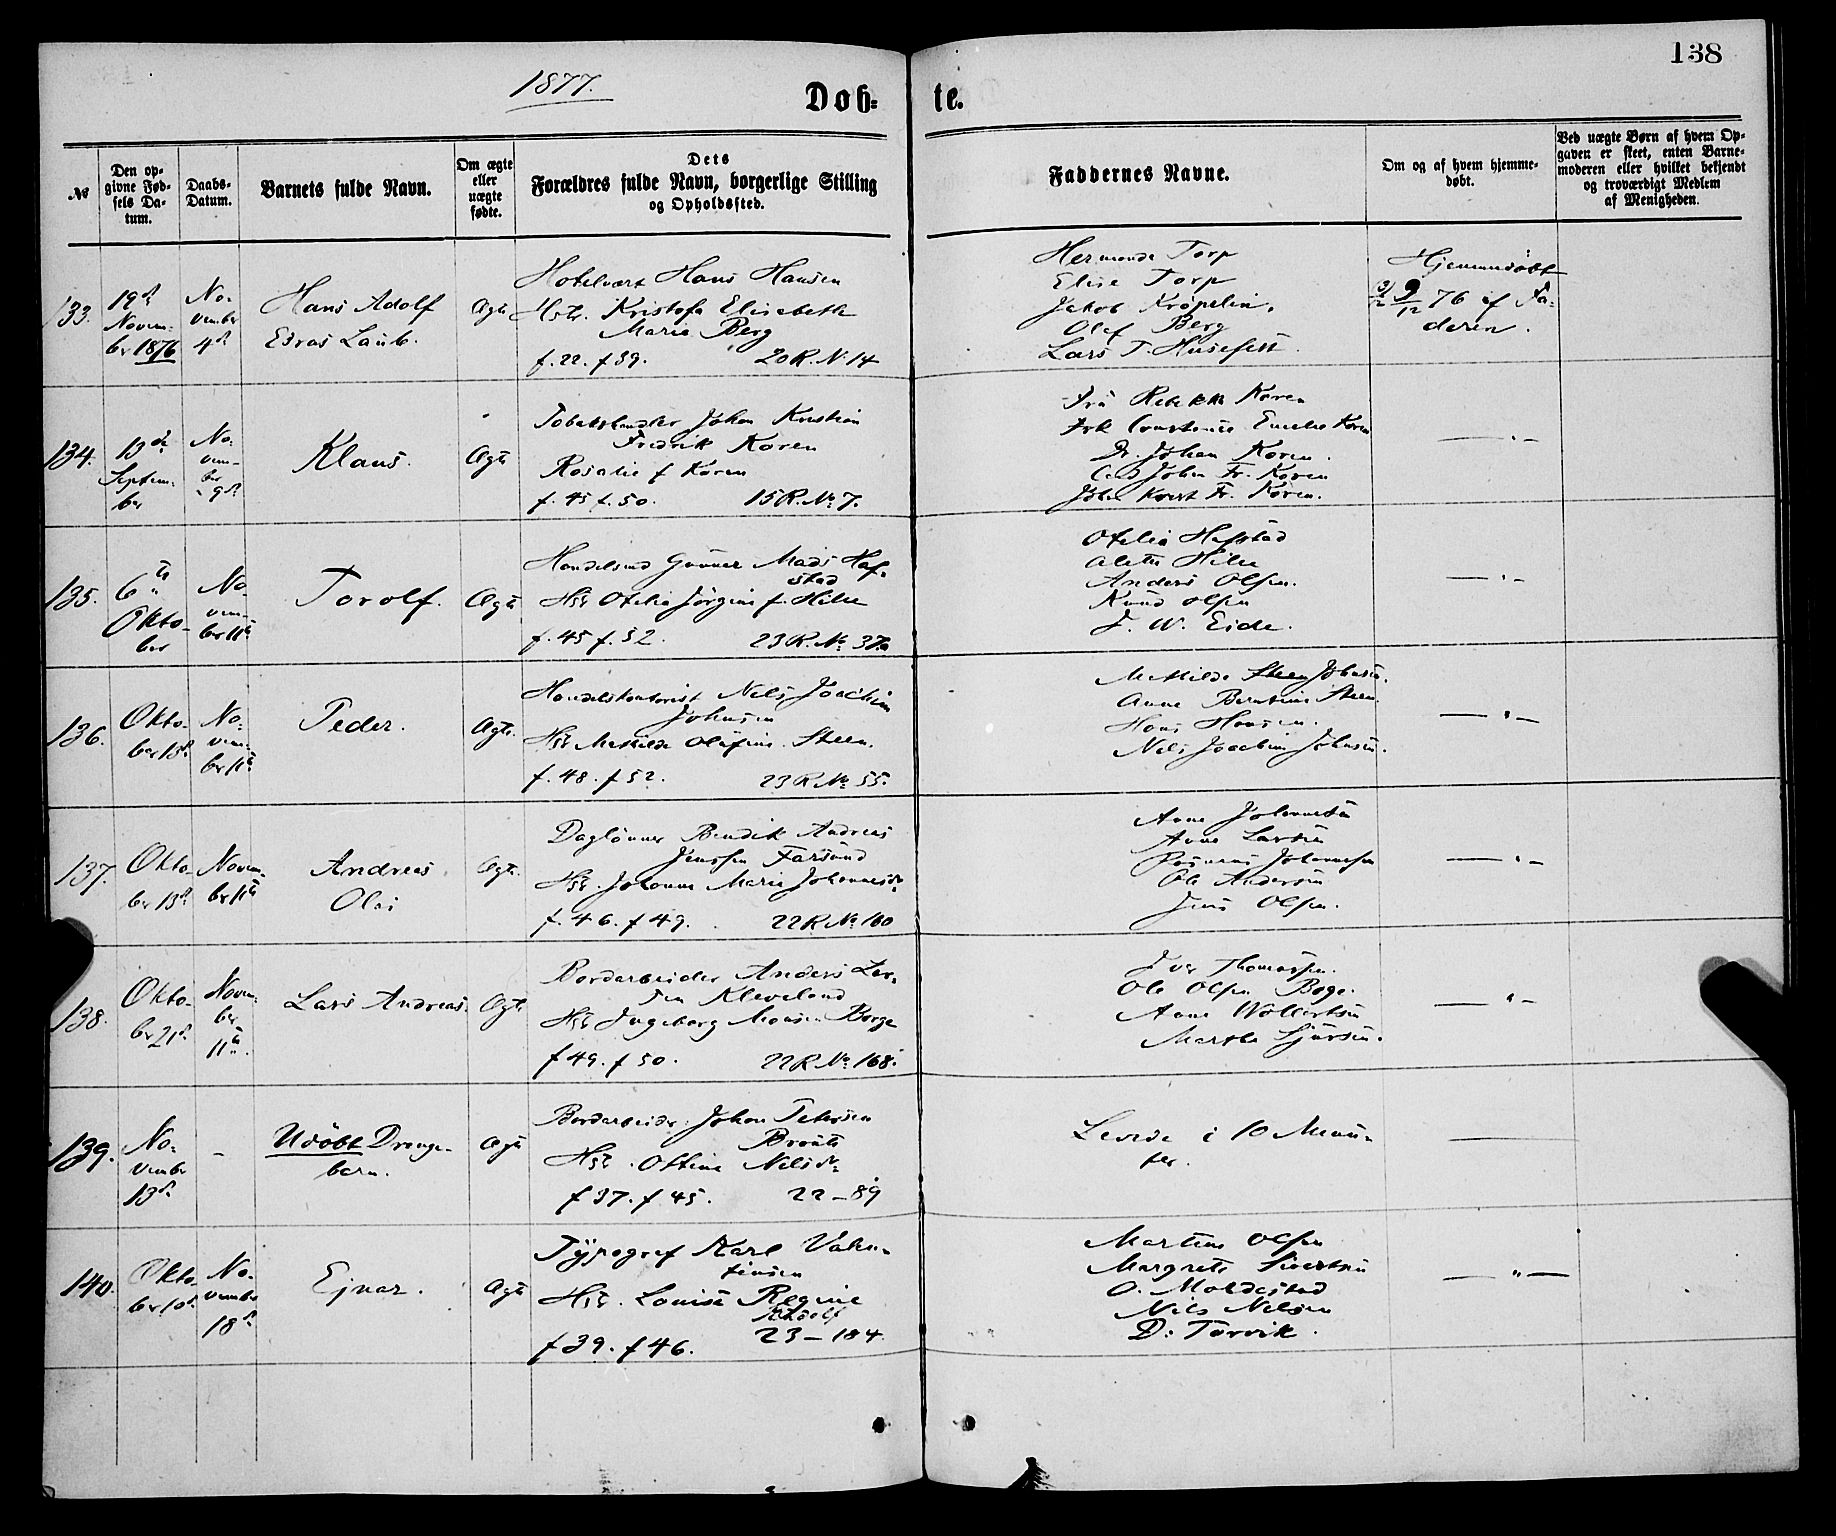 138
1877.
Døb-
te.
№
Den op-
givne Fød-
sels Da-
tum.
Daabs-
Datum.
Barnets fulde Navn.
Om ægte
eller
uægte
fødte.
Dets
Forældres fulde Navn, borgerlige Stilling
og Opholdssted.
Faddernes Navne.
Om og af hvem hjemme-
døbt.
Ved uægte Børn af hvem Op-
gaven er skeet, enten Barne-
moderen eller hvilket bekjendt
og troværdigt Medlem
af Menigheden.
133.
19d
Novem-
ber 1876
No-
vember
4d
Hans Adolf
Esras Laub.
Ægte
Hotelvært Hans Hansen
Hstr. Kristofa Elisabeth
Marie Berg
f. 22. f 39. 20 R. N. 14
Torp
Elise Torp
Jakob Kröpelin.
Olaf Berg
Lars T. Husefest.
Hjemmedöbt
9/12 76 af Fa-
deren.
134.
13de
Septem-
ber
No-
vem-
ber
9d
Klaus.
Ægte
Johan Kristian
Fredrik Koren
Rosalie f Koren
f. 45 f. 50. 15 R. No 7.
Fru Rebekka Koren
Frk Constance Emelie Koren
Dr. Johan Koren.
Cand Johan Fr. Koren
Johan Krist Fr. Koren.
135.
6te
Okto-
ber
No-
vem-
ber 11te
Torolf.
Ægte
Gunner Mads Haf-
stad
Hstr Otelia Jörgine f. Hille
f. 45 f. 52. 23 R. No 37a
Otelia Hafstad
Alette Hille
Anders Olsen.
Knud Olsen
J. W. Eide.
136.
Okto-
ber 13d
No-
vem-
ber 11te
Peder.
Ægte.
Handelskontorist Nils Joachim
Johnsen
Hstr Mathilde Olufine Steen.
f. 48. f 52. 23 R No 55.
Mathilde Steen Johnsen.
Anne Berntine Steen.
Hans Hansen.
Nils Joachim Johnsen.
137.
Okto-
ber 13d
Novem-
ber 11te
Andreas
Olai
Ægte.
Daglönner Bendik Andreas
Jenssen Farsund
Hstr. Johanne Marie Johannesdr
f. 46. f 49. 22 R No 160
Anne Johannesen
Anne Larsen
Rasmus Johannesen
Ole Andersen
Jens Olsen.
138.
Okto-
ber 21d
Novem-
ber
11te.
Lars Andreas.
Ægte
Bordarbeider Anders Lar-
sen Kleveland
Hstr Ingeborg Monsen Borge
f 49. f 50. 22 R No 168.
Iver Thomassen.
Ole Olsen Boge.
Anne Wollertsen
Marthe Sjursen.
139.
No-
vember
13d
-
Udöbt Drenge-
barn.
Ægte
Bordarbeider Johan Petersen
Hstr. Ottine Nelsdr
f 37. f 45. 22 – 89
Levede i 10 Minu-
ter.
140.
Okto-
ber 10d.
No-
vember
18d
Ejnar.
Ægte
Typograf Karl Valen-
tinsen
Hstr. Louise Regine
f 39. f 46. 23 – 184.
Martin Olsen
Margrete Sivertsen
O. Moldestad
Nils Nilsen
D. Torvik.